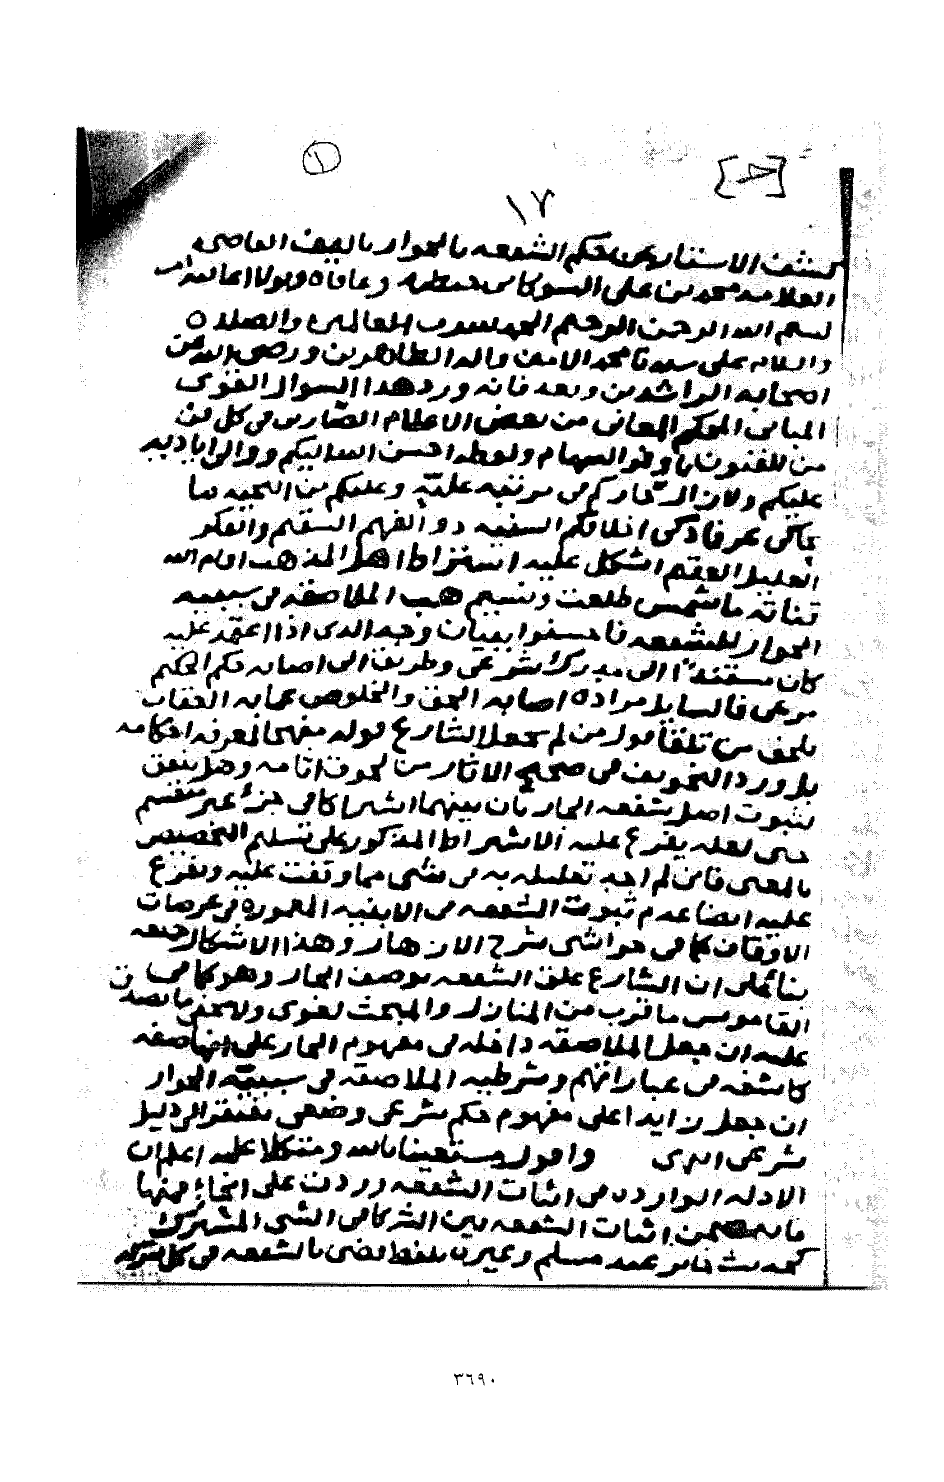 ١
[ح]
١٧
كشف الاستار عن حكم الشفعه بالجوار تاليف القاضى
العلامه محمد بن على الشوكانى حفظه وعافاه وتولاه الله
بسم الله الرحمن الرحيم الحمد لله رب العالمين والصلاه
والسلام على سيدنا محمد الامين واله الطاهرين ورضى الله عن
اصحابه الراشدين وبعد فانه ورد هذا السوال القوى
المبانى المحكم المعانى من بعض الاعلام الضاربين فى كل فن
من الفنون باوفر السهام ولفظه احسن الله اليكم ووالى اياديه
عليكم ولازالت فى مرتبه عليه وعليكم من التحيه ما
يحاكى عرفا ذكى اخلاقكم السنيه ذو الفهم السقيم والفكر
العليل العقيم اشكل عليه اشتراط اهل المذهب اقام الله
قناته ما شمس طلعت ونسيم هب الملاصقه فى سببيه
الجوار للشفعه فاحسنوا ببيان وجه الذى اذا اعتمد عليه
كان مستندا الى مدرك شرعى وطريق الى اصابه حكم الحكم
مرعى فالسايل مراده اصابه الحق والخلوص عما به العقاب
يلحق من تلقا قول من لم يجعل الشارع قوله منهجا لمعرفه احكامه
بل ورد التخويف فى صحيح الاثار من لحوق اثامه وهل ينفق
ثبوت اصل شفعه الجار بان بينهما اشتراكا فى جزء غير منقسم
حتى لعله يفرع عليه الاشتراط المذكور على تسليم التخصيص
بالمعنى فانى لم اجد تعليله به فى شى مما وقفت عليه وتفرع
عليه ايضا عدم ثبوت الشفعه فى الابنيه المعموره فى عرصات
الاوقاف كما فى حواشى شرح الازهار وهذا الاشكال جميعه
بنا على ان الشارع علق الشفعه بوصف الجار وهو كما فى
القاموس ما قرب من المنازل والمبحث لغوى ولا يخفى ما يصد ق
عليه ان جعل الملاصقه داخله فى مفهوم الجار على انها صفه
كاشفه فى عباراتهم وشرطيه الملاصقه فى سببيه الجوار
ان جعل زايدا على مفهوم حكم شرعى وضعى يفتقر الى دليل
شرعى انتهى واقول مستعينا بالله ومتكلا عليه اعلم ان
الادله الوارده فى اثبات الشفعه وردت على انحاء فمنها
ما يتضمن اثبات الشفعه بين الشركا فى الشى المشترك
كحديث جابر عند مسلم وغيره بلفظ قضى بالشفعه فى كل شركه
٣٦٩٠